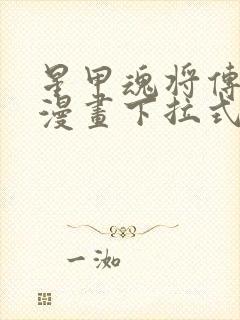 星甲魂将傳
漫畫下拉式
一洳